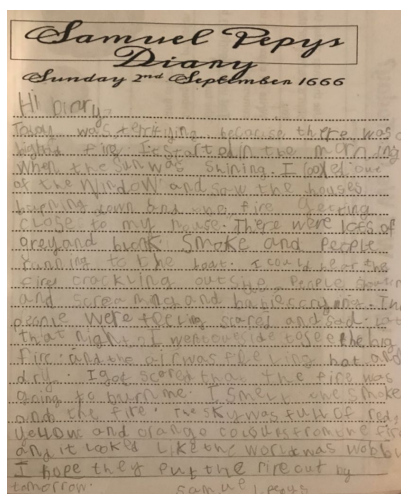 Samuel Pepys
Diary
Sunday 2nd September 1666
Hi Diary,
Today was terrifying because there was a
big fire. It started in the morning
when the sun was shining. I looked out
of the window and saw the houses
burning down and the fire getting
close to my house. There were lots of
grey and black smoke and people
running to the boat. I could hear the
fire crackling outside people
and screaming and babies crying. The
people were feeling scared and sad.
that night I went outside to see the big
fire and the air was feeling hot and
dry. I got scared that the fire was
going to burn me. I smelt the smoke
and the fire. The sky was full of red,
yellow and orange colours from the fire
and it looked like the world was
I hope they put the fire out by
tomorrow. Samuel Pepys